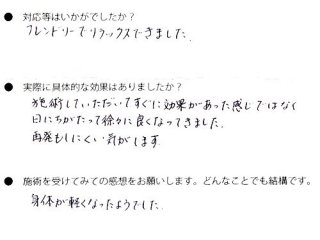 ● 対応等はいかがでしたか?
フレンドリーでリラックスできました。
● 実際に具体的な効果はありましたか?
施術していただいてすぐに効果があった感じではなく
日にちがたって徐々に良くなってきました。
再発もしにくい気がします
● 施術を受けてみての感想をお願いします。どんなことでも結構です。
身体が軽くなったようでした。